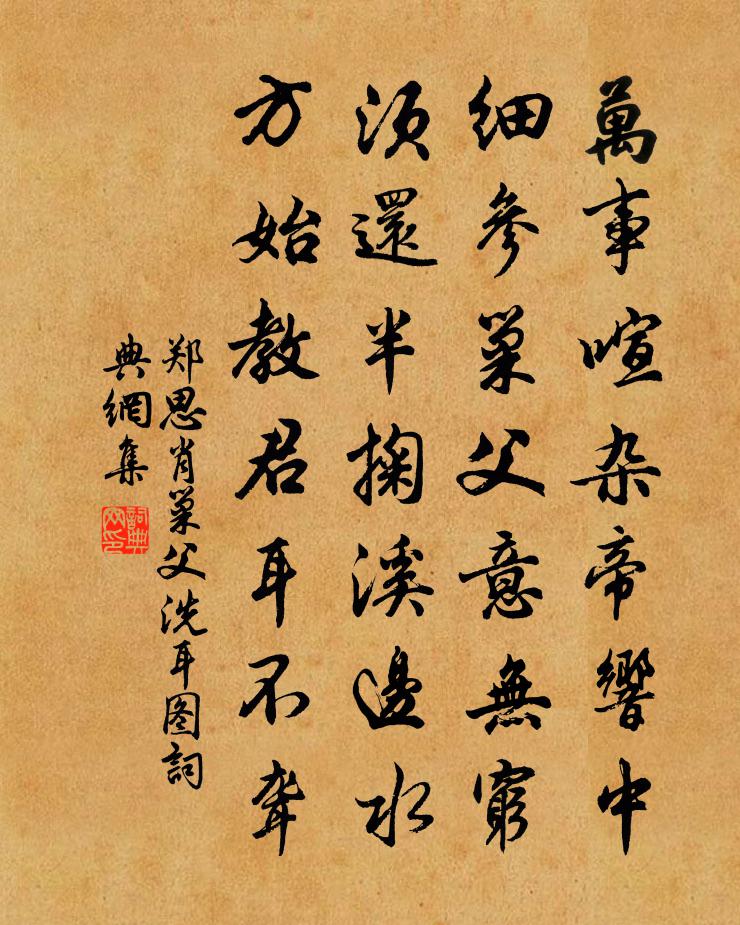 萬事喧杂帝響中
細參巢父意無窮
須還半掬溪邊水
方始教君耳不聋
郑思肖巢父洗耳图詞
典網集
詞典网印